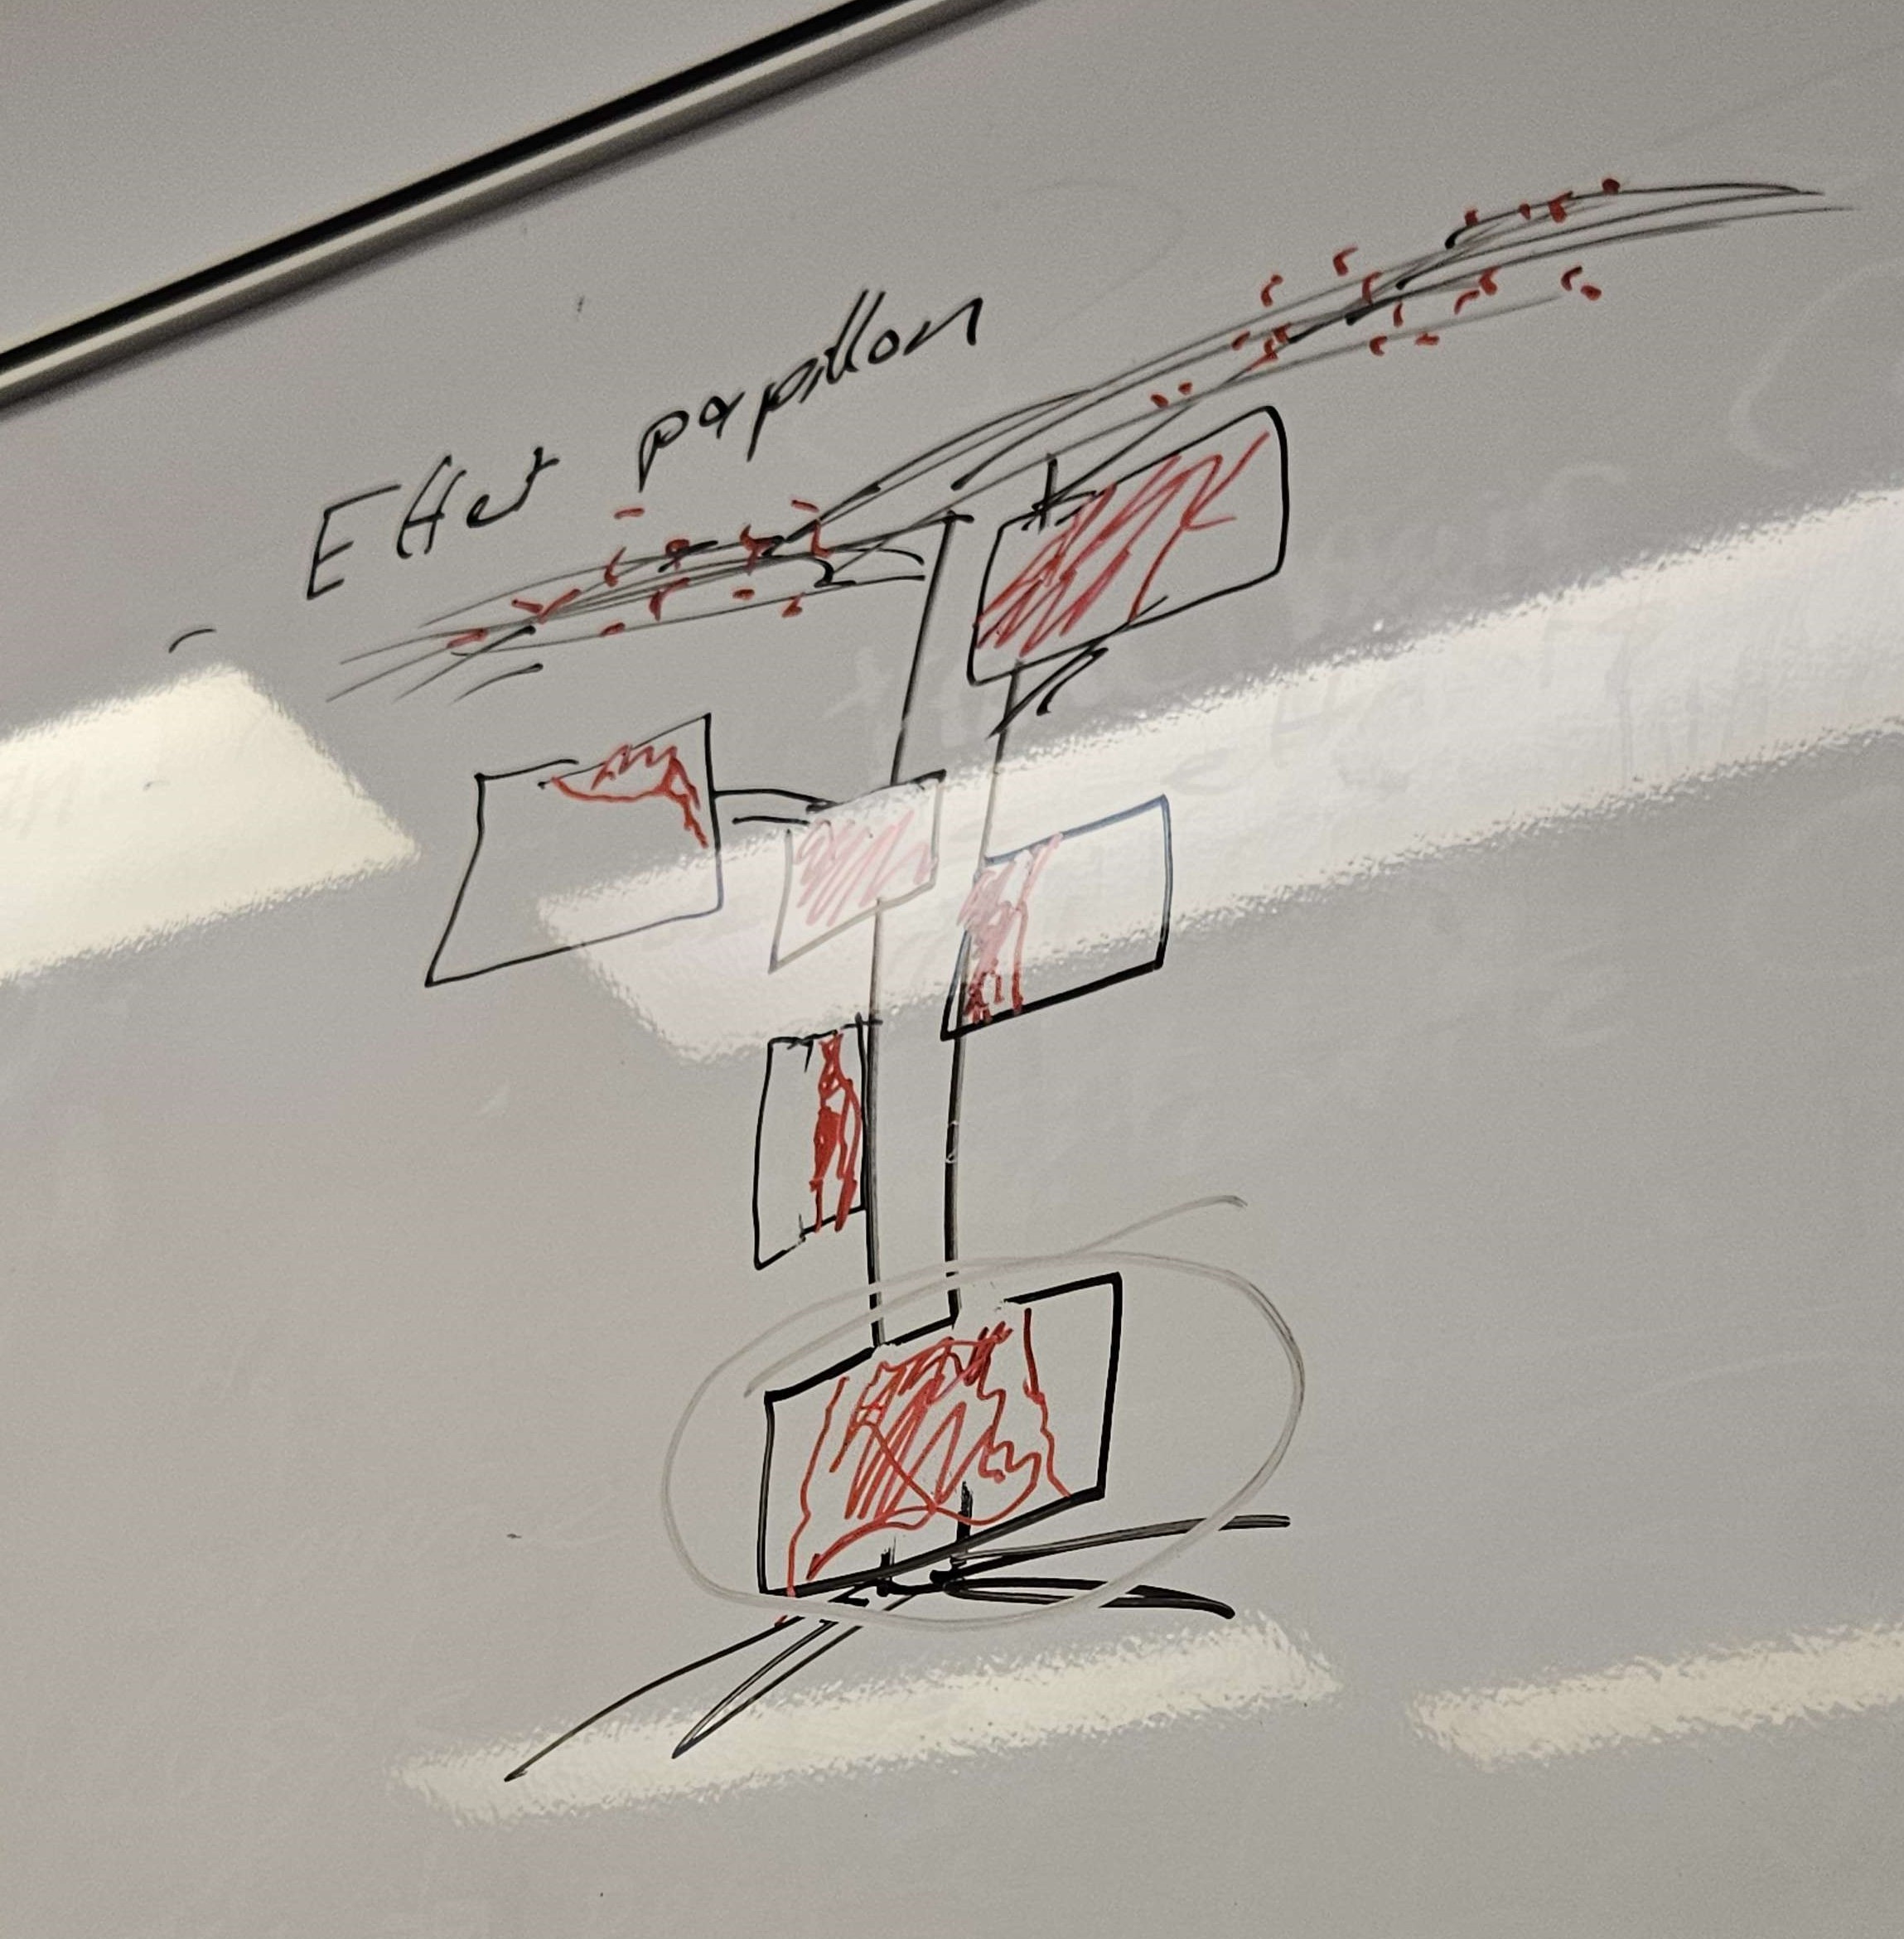 Effet papillon